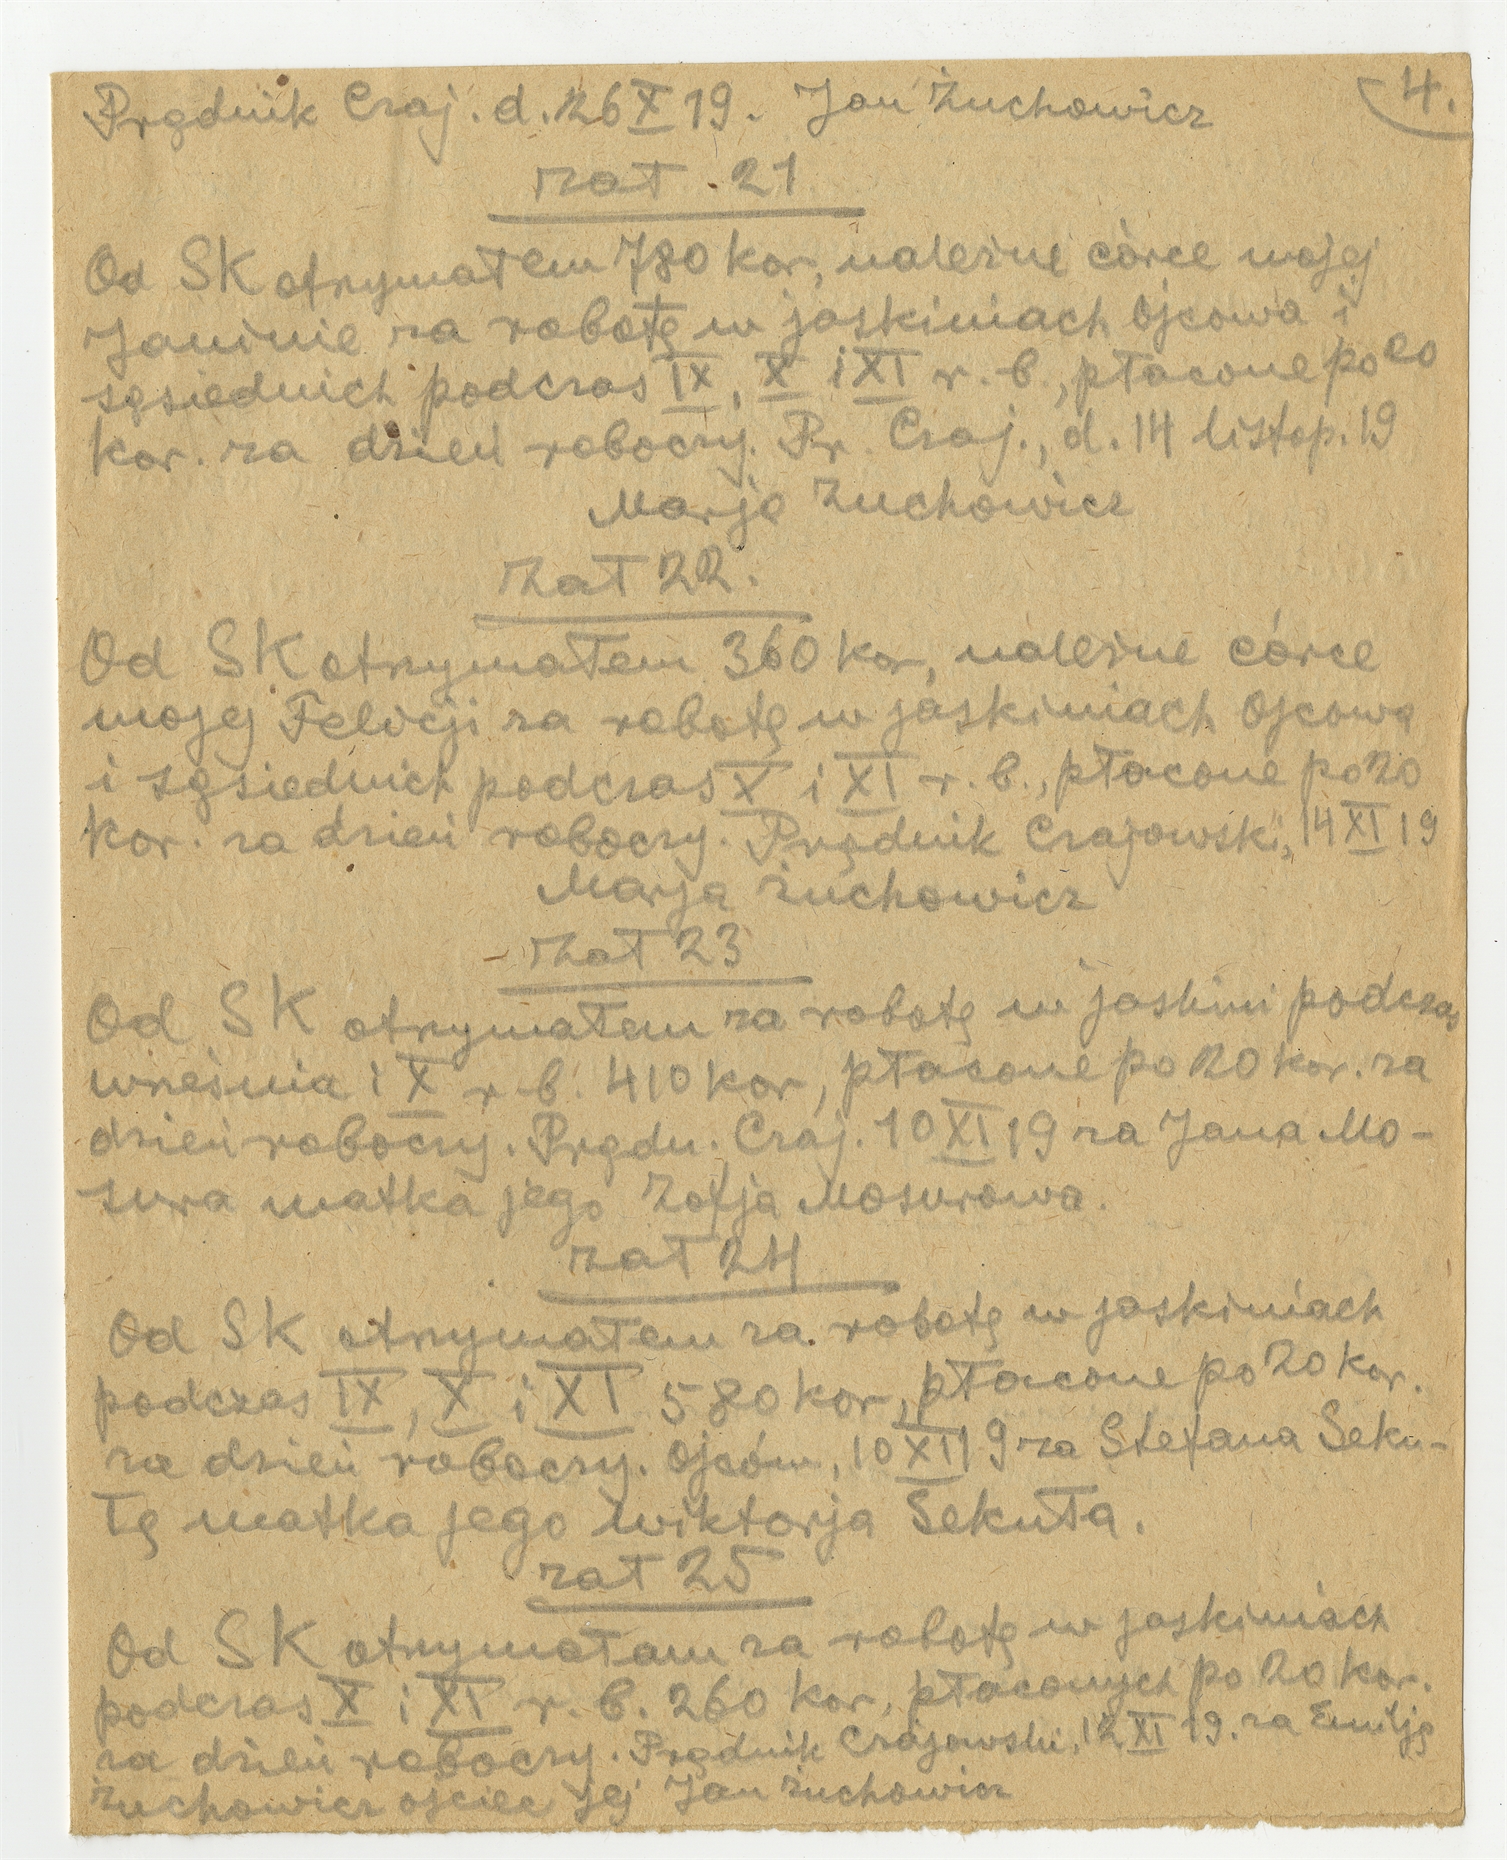 Prądnik Czaj. d. 26 X 19. Jan Żuchowicz
4.
zał. 21
Od SK otrzymałem 780 kor, należne córce mojej
Janinie za robotę w jaskiniach Ojcowa i
sąsiednich podczas IX, X i XI r. b., płacone po 20
kor. za dzień roboczy. Pr. Czaj., d. 14 listop. 19
Marja Żuchowicz
Zał 22.
Od SK otrzymałem 360 kor, należne córce
mojej Felicji za robotę w jaskiniach Ojcowa
i sąsiednich podczas X i XI r. b., płacone po 20
kor. za dzień roboczy. Prądnik Czajowski, 14 XI 19
Marja Żuchowicz
Zał 23
Od SK otrzymałem za robotę w jaskini podczas
września i X r. b. 410 kor, płacone po 20 kor. za
dzień roboczy. Prądn. Czaj. 10 XI 19 za Jana Mo-
sura matka jego Zofja Mosurowa.
zał 24
Od SK otrzymałem za robotę w jaskiniach
podczas IX, X i XI 580 kor, płacone po 20 kor.
za dzień roboczy. Ojców, 10 XI 19 za Stefana Seku-
łę matka jego Wiktorja Sekuła.
zał 25
Od SK otrzymałam za robotę w jaskiniach
podczas X i XI r. b. 260 kor, płaconych po 20 kor.
za dzień roboczy. Prądnik Czajowski, 12 XI 19. za Emilję
Żuchowicz ojciec jej Jan Żuchowicz